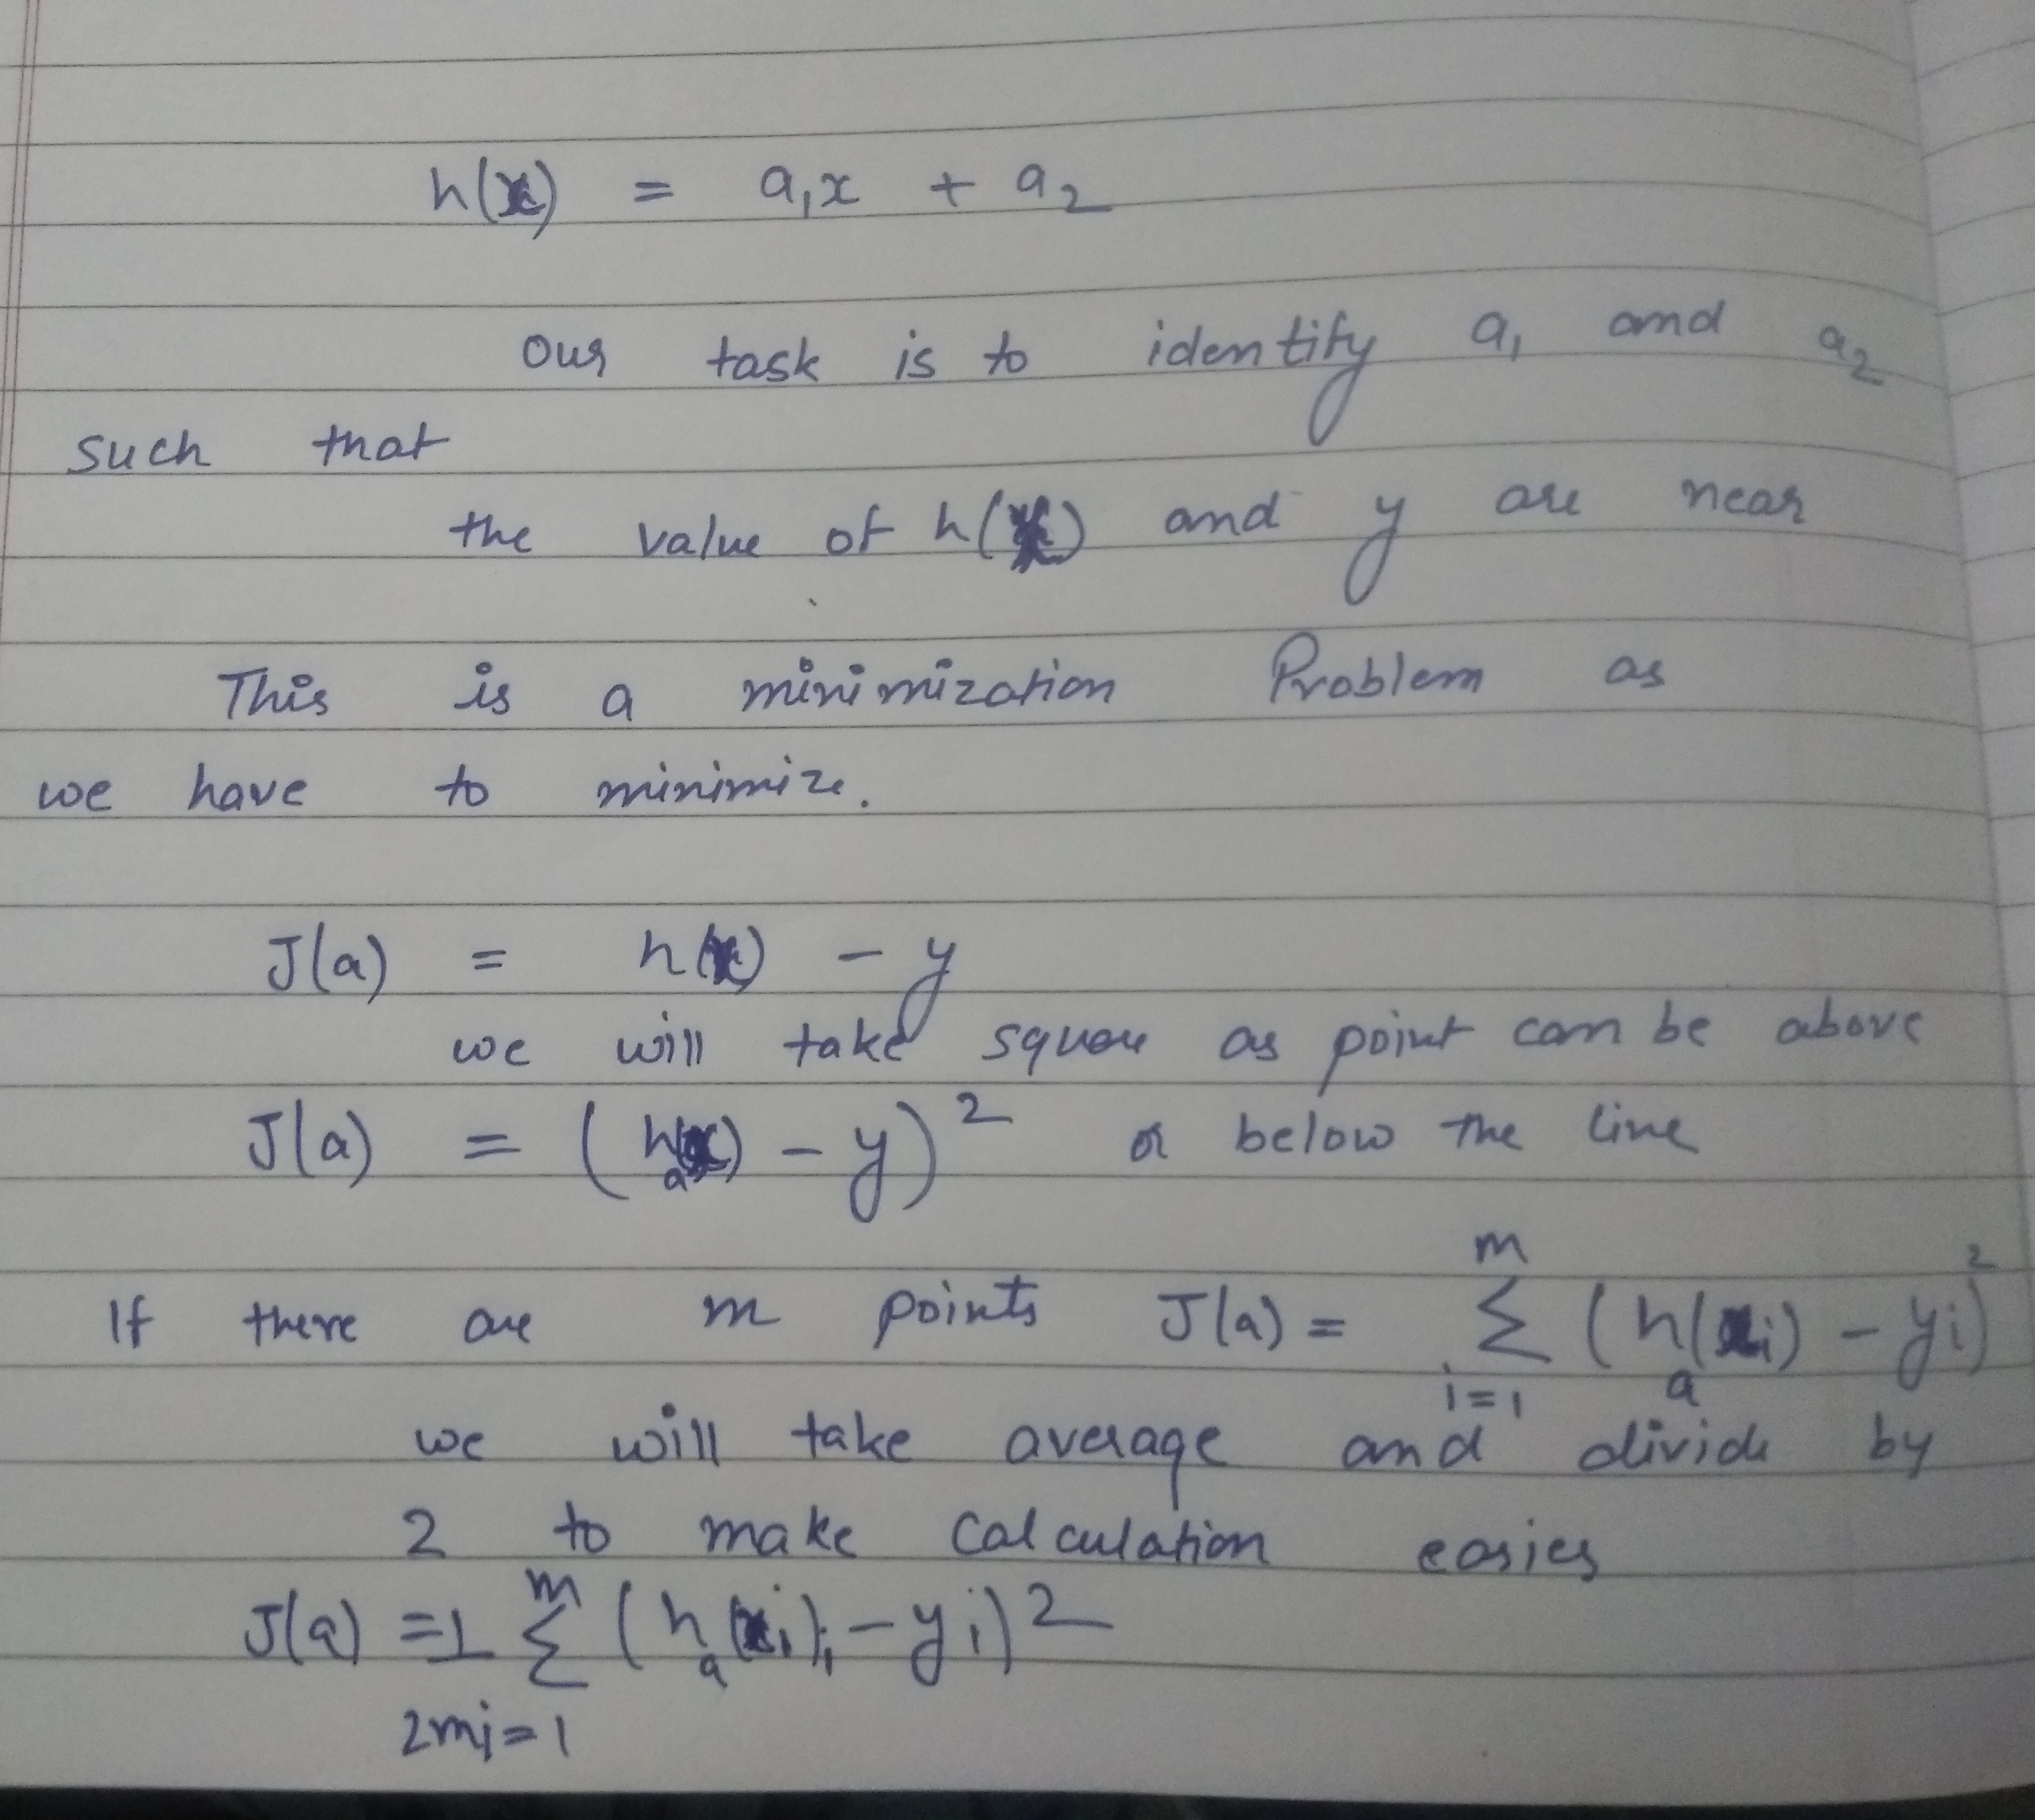 h(x) = a₁x + a₂
Our task is to identify a₁ and a₂
such that
the value of h(x) and y are near
This is a minimization Problem as
we have to minimize.
J(a) = h(x) - y
we will take square as point can be above
J(a) = (hₐ(x) - y)² or below the line
If there are m points J(a) = Σᵢ₌₁ᵐ (hₐ(xᵢ) - yᵢ)²
we will take average and divide by
2 to make calculation easier
J(a) = 1/2m Σᵢ₌₁ᵐ (hₐ(xᵢ)ᵢ - yᵢ)²